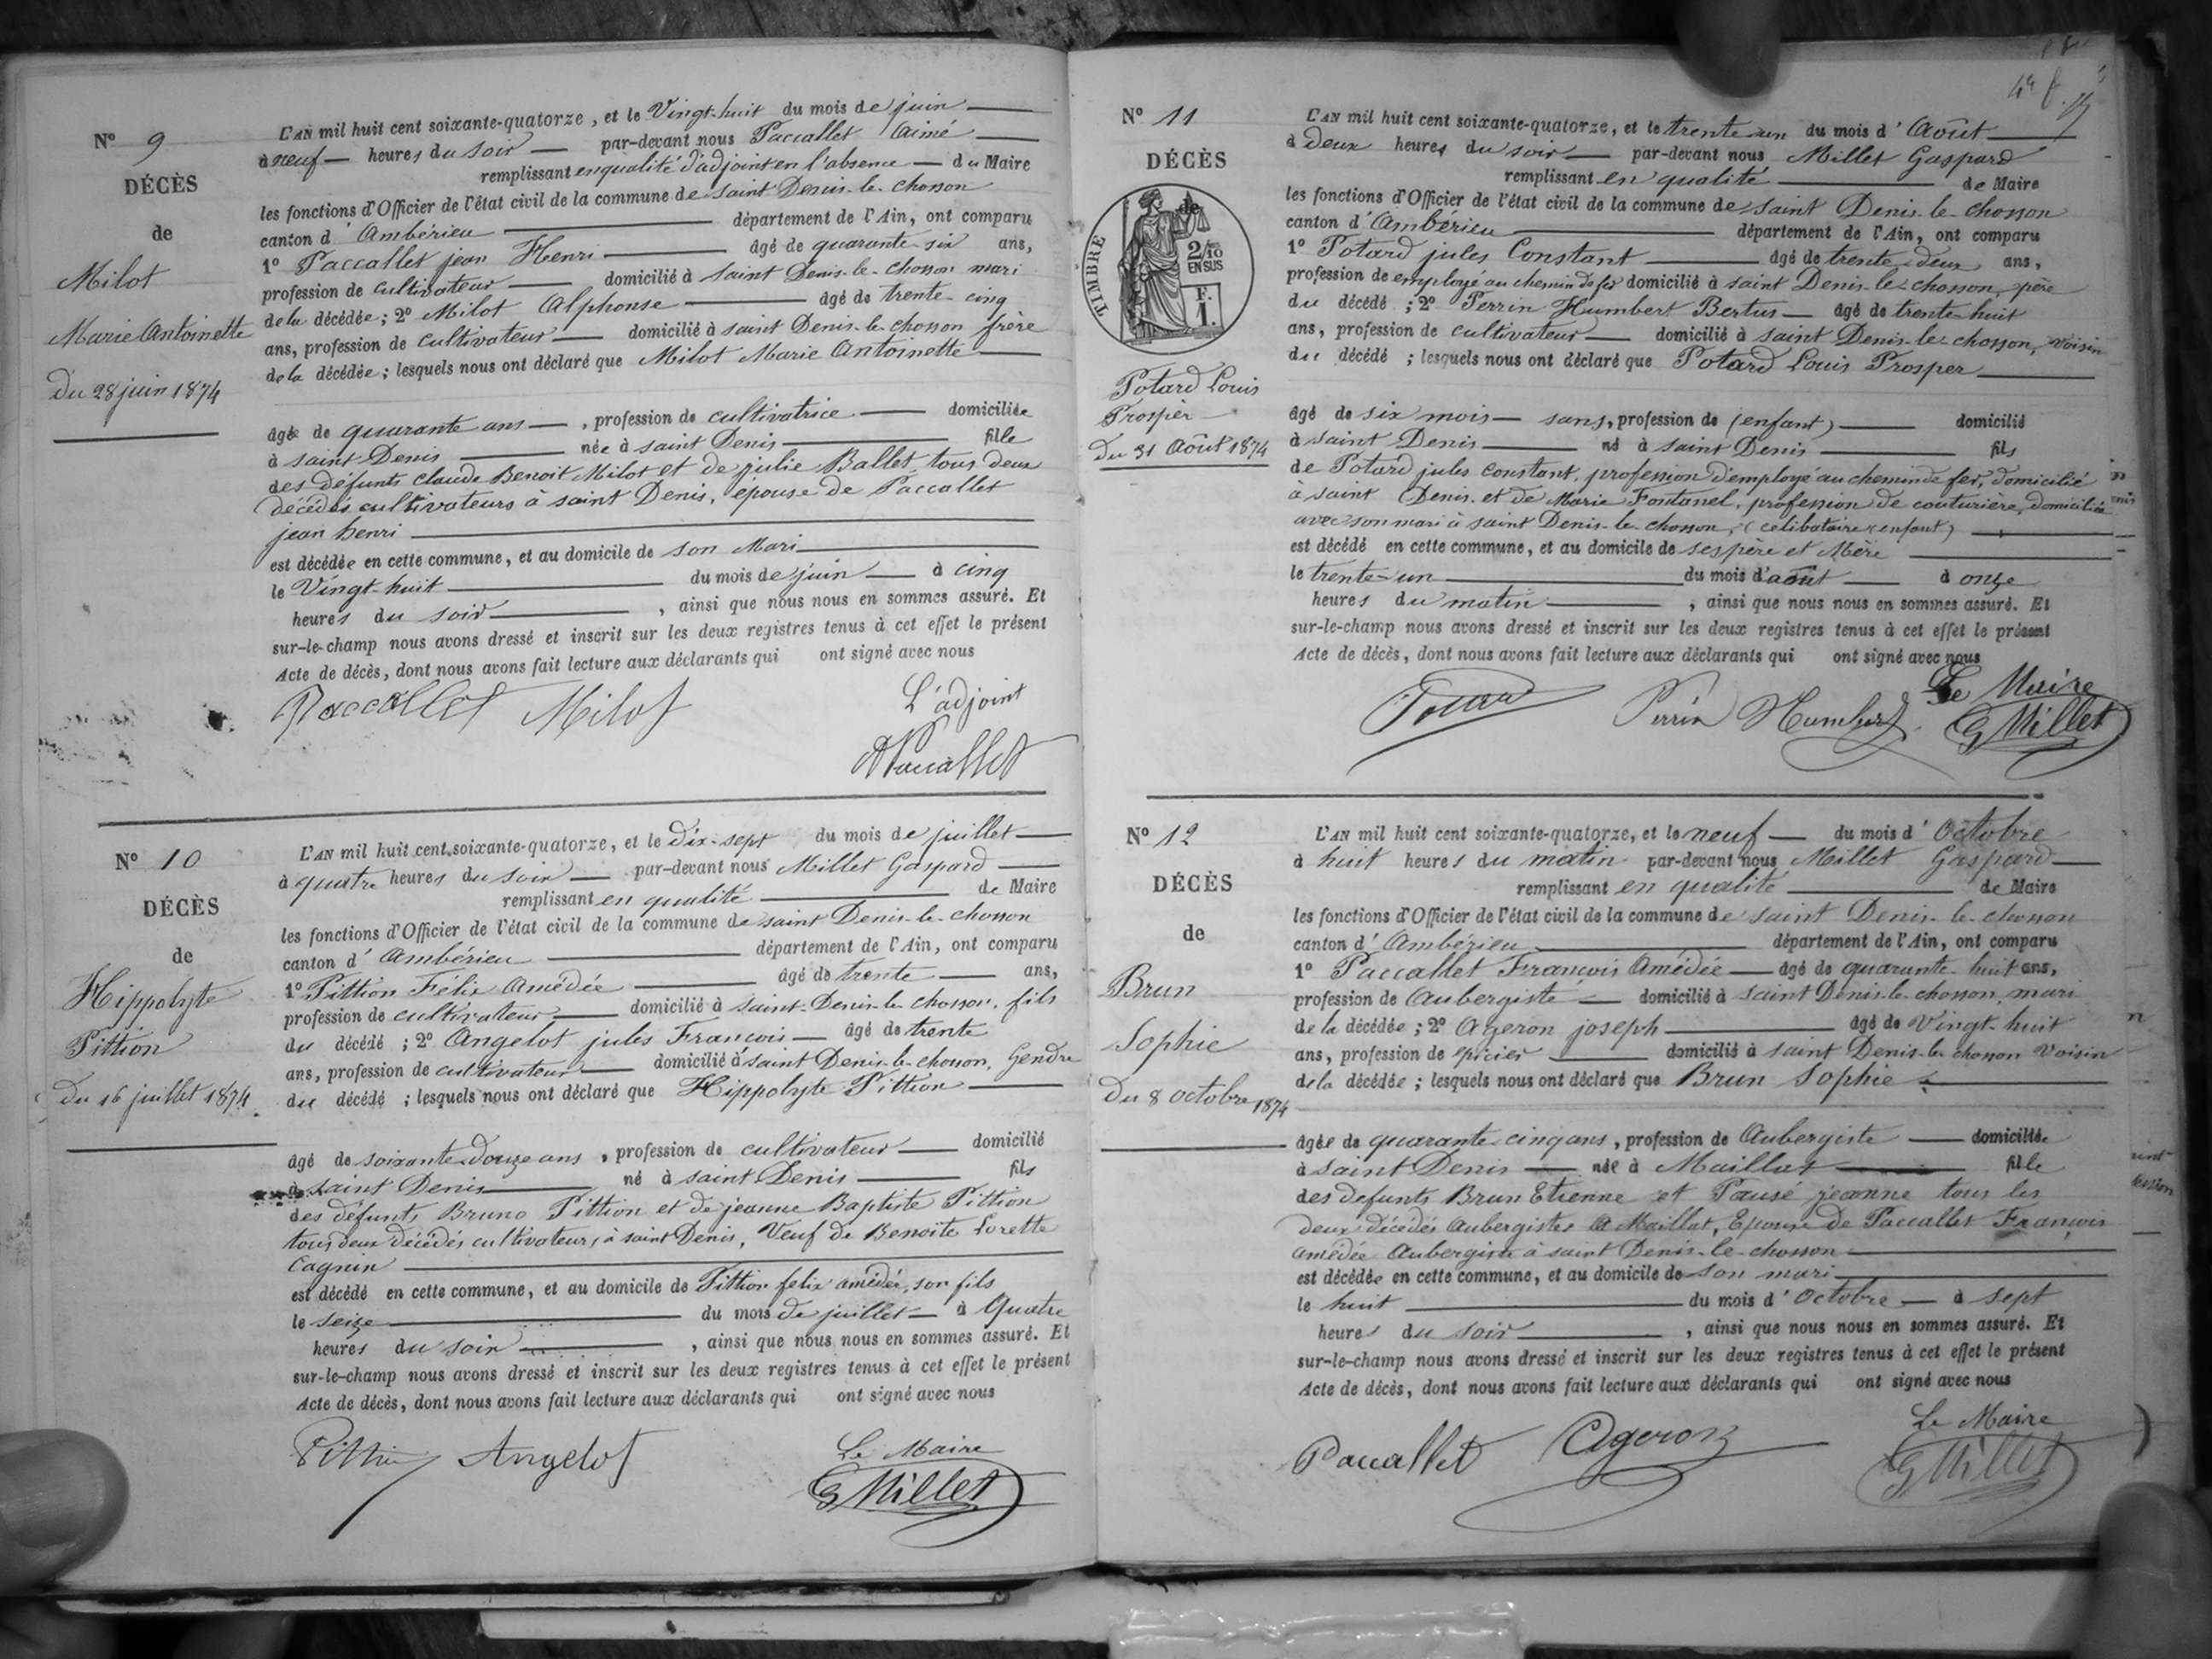 N° 9
DÉCÈS
de
Milot
Marie Antoinette
Du 28 juin 1874
L'AN mil huit cent soixante-quatorze, et le Vingt-huit du mois de juin
à neuf heures du soir par-devant nous Paccallet Aimé
remplissant en qualité d'adjoint en l'absence du Maire
les fonctions d'Officier de l'état civil de la commune de saint Denis-le-chosson
canton d'Ambérieu département de l'Ain, ont comparu
1° Paccallet jean Henri âgé de quarante-six ans,
profession de cultivateur domicilié à saint Denis-le-chosson mari
de la décédée; 2° Milot Alphonse âgé de trente-cinq
ans, profession de cultivateur domicilié à saint Denis-le-chosson frère
de la décédée; lesquels nous ont déclaré que Milot Marie Antoinette
âgée de quarante ans, profession de cultivatrice domiciliée
à saint Denis née à saint Denis fille
des défunts claude Benoit Milot et de julie Ballet, tous deux
décédés cultivateurs à saint Denis, épouse de Paccallet
jean henri
est décédée en cette commune, et au domicile de son Mari
le Vingt-huit du mois de juin à cinq
heures du soir, ainsi que nous nous en sommes assuré. Et
sur-le-champ nous avons dressé et inscrit sur les deux registres tenus à cet effet le présent
Acte de décès, dont nous avons fait lecture aux déclarants qui ont signé avec nous
Paccallet Milot L'adjoint
APaccallet
N° 10
DÉCÈS
de
Hippolyte
Pittion
Du 16 juillet 1874
L'AN mil huit cent soixante-quatorze, et le Dix-sept du mois de juillet
à quatre heures du soir par-devant nous Millet Gaspard
remplissant en qualité de Maire
les fonctions d'Officier de l'état civil de la commune de saint Denis-le-chosson
canton d'Ambérieu département de l'Ain, ont comparu
1° Pittion Félix Amédée âgé de trente ans,
profession de cultivateur domicilié à saint-Denis-le-chosson, fils
du décédé; 2° Angelot jules François âgé de trente
ans, profession de cultivateur domicilié à saint Denis-le-chosson, Gendre
du décédé; lesquels nous ont déclaré que Hippolyte Pittion
âgé de soixante-douze ans, profession de cultivateur domicilié
à saint Denis né à saint Denis fils
des défunts Bruno Pittion et de jeanne Baptiste Pittion
tous deux décédés cultivateurs à saint Denis, Veuf de Benoite Lorette
Cagnin
est décédé en cette commune, et au domicile de Pittion felix amédée, son fils
le seize du mois de juillet à Quatre
heures du soir, ainsi que nous nous en sommes assuré. Et
sur-le-champ nous avons dressé et inscrit sur les deux registres tenus à cet effet le présent
Acte de décès, dont nous avons fait lecture aux déclarants qui ont signé avec nous
Pittion Angelot Le Maire
G Millet
N° 11
DÉCÈS
de
TIMBRE
2/10
EN SUS
F.
1.
Potard Louis
Prosper
Du 31 Août 1874
L'AN mil huit cent soixante-quatorze, et le trente-un du mois d'Août
à Deux heures du soir par-devant nous Millet Gaspard
remplissant en qualité de Maire
les fonctions d'Officier de l'état civil de la commune de saint Denis-le-chosson
canton d'Ambérieu département de l'Ain, ont comparu
1° Potard jules Constant âgé de trente-deux ans,
profession de employé au chemin de fer domicilié à saint Denis-le-chosson, père
du décédé; 2° Perrin Humbert Bertus âgé de trente-huit
ans, profession de cultivateur domicilié à saint Denis-le-chosson, voisin
du décédé; lesquels nous ont déclaré que Potard Louis Prosper
âgé de six mois sans, profession de (enfant) domicilié
à saint Denis né à saint Denis fils
de Potard jules constant, profession d'employé au chemin de fer, domicilié
à saint Denis et de Marie Fontanel, profession de couturière, domiciliée
avec son mari à saint Denis-le-chosson, (célibataire enfant)
est décédé en cette commune, et au domicile de ses père et Mère
le trente-un du mois d'août à onze
heures du matin, ainsi que nous nous en sommes assuré. Et
sur-le-champ nous avons dressé et inscrit sur les deux registres tenus à cet effet le présent
Acte de décès, dont nous avons fait lecture aux déclarants qui ont signé avec nous
Potard Perrin Humbert Le Maire
G Millet
N° 12
DÉCÈS
de
Brun
Sophie
Du 8 octobre 1874
L'AN mil huit cent soixante-quatorze, et le neuf du mois d'Octobre
à huit heures du matin par-devant nous Millet Gaspard
remplissant en qualité de Maire
les fonctions d'Officier de l'état civil de la commune de saint Denis-le-chosson
canton d'Ambérieu département de l'Ain, ont comparu
1° Paccallet François Amédée âgé de quarante-huit ans,
profession de Aubergiste domicilié à saint Denis-le-chosson, mari
de la décédée; 2° Ageron joseph âgé de Vingt-huit
ans, profession de épicier domicilié à saint Denis-le-chosson Voisin
de la décédée; lesquels nous ont déclaré que Brun Sophie
âgée de quarante-cinq ans, profession de Aubergiste domiciliée
à saint Denis née à Maillat fille
des défunts Brun Etienne et Pausé jeanne tous les
deux décédés Aubergistes A Maillat, Epouse de Paccallet François
amédée Aubergiste à saint Denis-le-chosson
est décédée en cette commune, et au domicile de son mari
le huit du mois d'Octobre à sept
heures du soir, ainsi que nous nous en sommes assuré. Et
sur-le-champ nous avons dressé et inscrit sur les deux registres tenus à cet effet le présent
Acte de décès, dont nous avons fait lecture aux déclarants qui ont signé avec nous
Paccallet Ageron Le Maire
G Millet